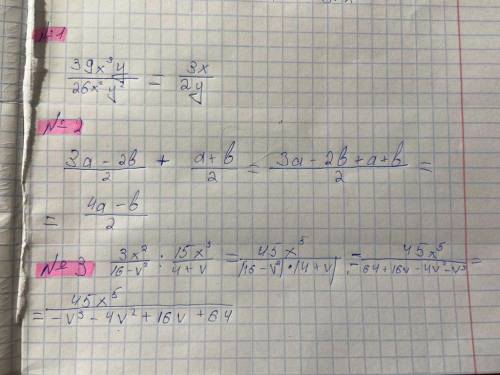 №1
39x³y / 26x²y² = 3x / 2y
№2
3a-2b / 2 + a+b / 2 = 3a-2b+a+b / 2 =
= 4a-b / 2
№3 3x² / 16-v² · 15x³ / 4+v = 45x⁵ / (16-v²)·(4+v) = 45x⁵ / 64+16v-4v²-v³ =
= 45x⁵ / -v³-4v²+16v+64